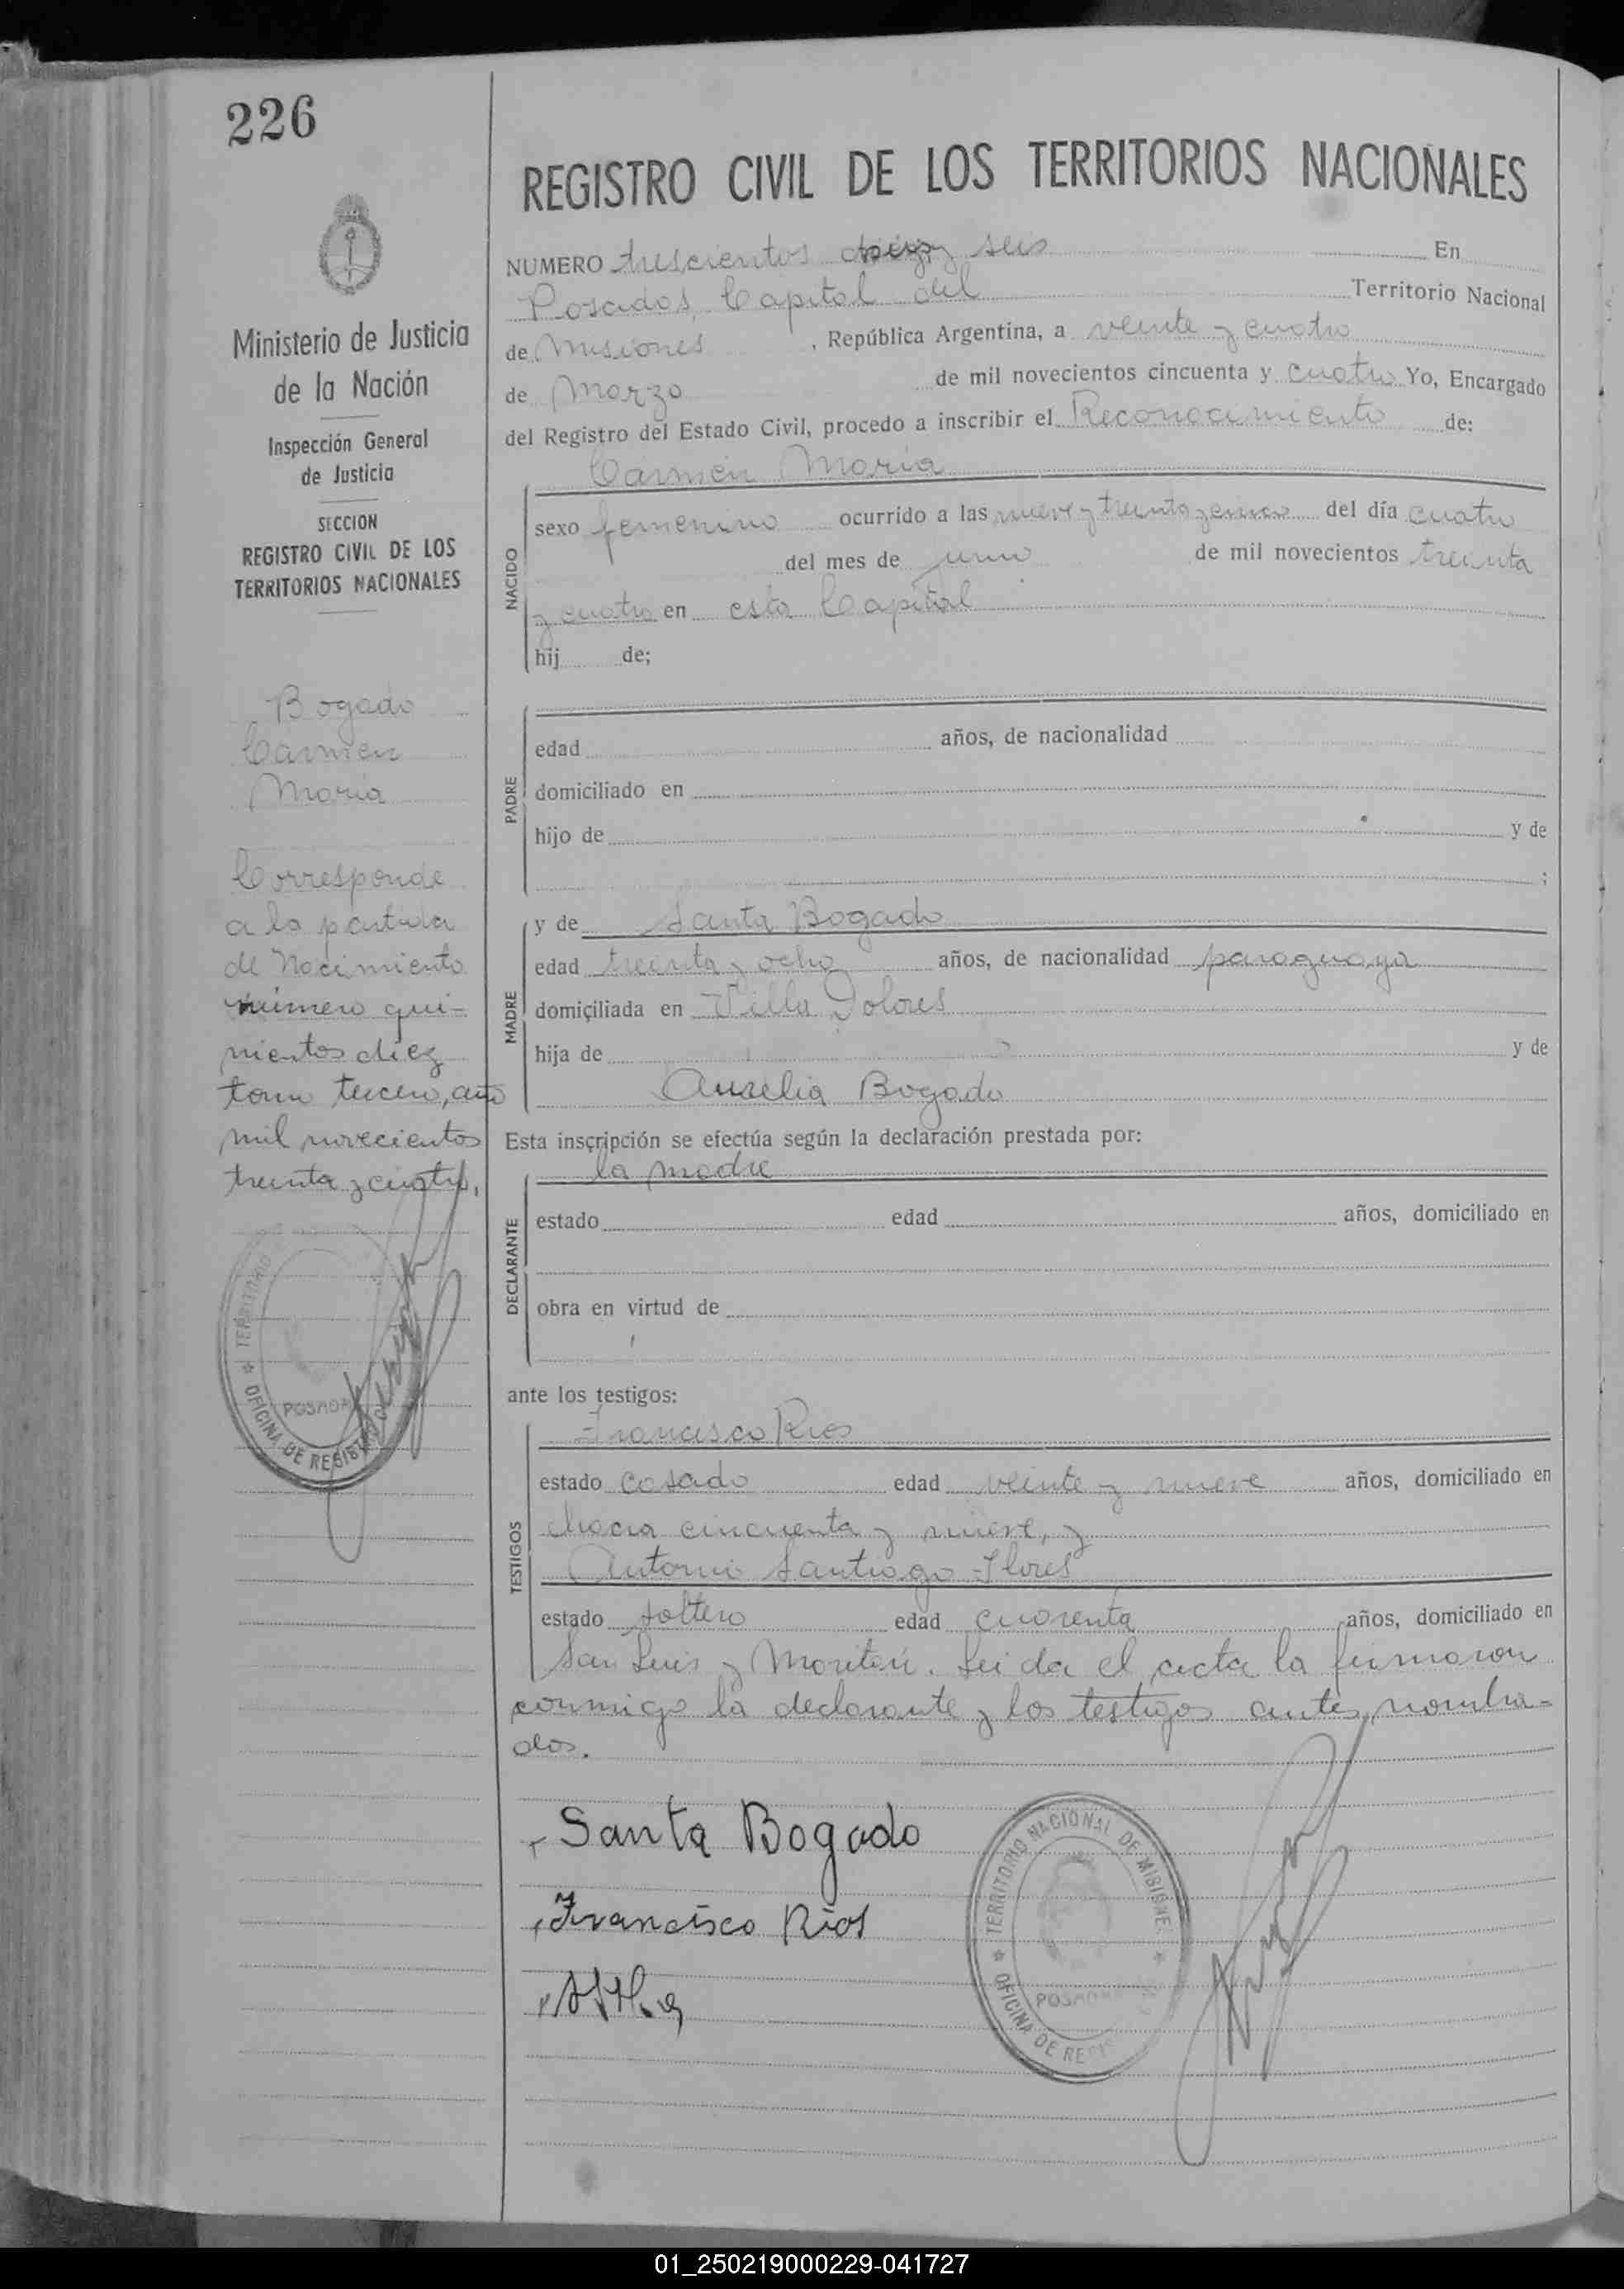 226
REGISTRO CIVIL DE LOS TERRITORIOS NACIONALES
NUMERO trescientos diez y seis En
Posadas, Capital del Territorio Nacional
de Misiones, República Argentina, a veinte y cuatro
de Marzo de mil novecientos cincuenta y cuatro Yo, Encargado
del Registro del Estado Civil, procedo a inscribir el Reconocimiento de:
Carmen María
sexo femenino ocurrido a las nueve y treinta y cinco del día cuatro
del mes de de mil novecientos treinta
y cuatro en esta Capital
hij de;
NACIDO
edad años, de nacionalidad
domiciliado en
hijo de y de
;
PADRE
y de Santa Bogado
edad treinta y ocho años, de nacionalidad paraguaya
domiciliada en Villa Dolores
hija de y de
Aurelia Bogado
MADRE
Esta inscripción se efectúa según la declaración prestada por:
la madre
estado edad años, domiciliado en
obra en virtud de
DECLARANTE
ante los testigos:
Francisco Rios
estado casado edad veinte y nueve años, domiciliado en
chacra cincuenta y nueve, y
Antonio Santiago Flores
estado soltero edad cuarenta años, domiciliado en
San Luis y Leida el acta la firmaron
conmigo la declarante y los testigos antes nombra-
dos.
TESTIGOS
Santa Bogado
Francisco Ríos
TERRITORIO NACIONAL DE MISIONES
OFICINA DE
POSADAS
Ministerio de Justicia
de la Nación
Inspección General
de Justicia
SECCION
REGISTRO CIVIL DE LOS
TERRITORIOS NACIONALES
Bogado
Carmen
María
Corresponde
a la partida
de Nacimiento
número qui-
nientos diez
tomo tercero, año
mil novecientos
treinta y cuatro.
TERRITORIO
OFICINA DE
POSADA
01_250219000229-041727